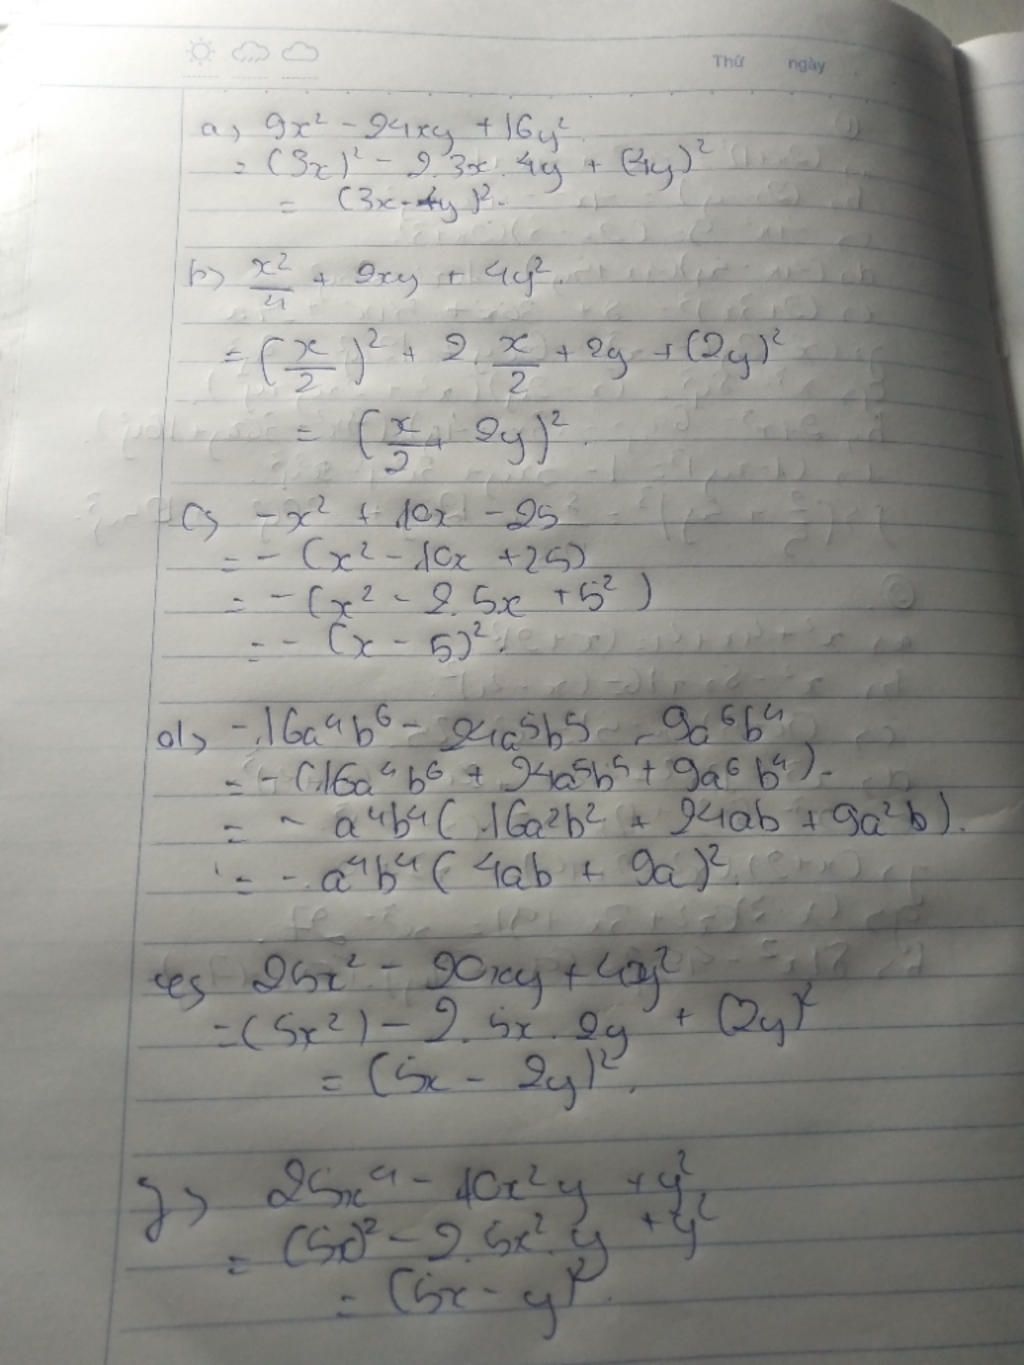 Thứ ngày
a) 9x² - 24xy + 16y²
= (3x)² - 2.3x.4y + (4y)²
= (3x-4y)².
b) x²/4 + 2xy + 4y².
= (x/2)² + 2.x/2 + 2y + (2y)²
= (x/2 + 2y)².
c) -x² + 10x - 25
= - (x² - 10x + 25)
= - (x² - 2.5x + 5²)
= - (x - 5)².
d) -16a⁴b⁶ - 24a⁵b⁵ - 9a⁶b⁴
= - (16a⁴b⁶ + 24a⁵b⁵ + 9a⁶b⁴).
= - a⁴b⁴(16a²b² + 24ab + 9a²b).
= - a⁴b⁴(4ab + 9a)².
e) 25x² - 20xy + 4y²
= (5x²) - 2.5x.2y + (2y)²
= (5x - 2y)².
g) 25x⁴ - 10x²y + y²
= (5x)² - 2.5x².y + y²
= (5x - y)².